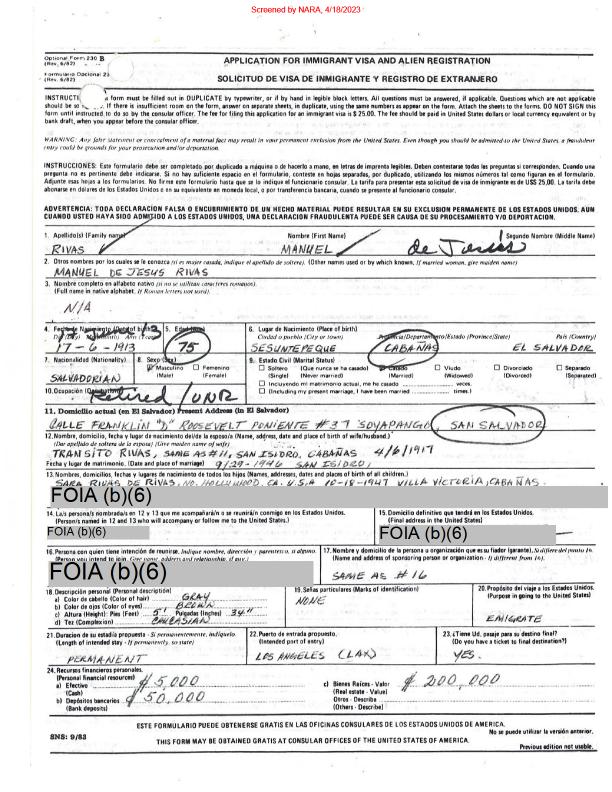 Screened by NARA, 4/18/2023
Optional Form 230 B
(Rev. 6/82)
Formulario Opcional 23
(Rev. 6/82)
APPLICATION FOR IMMIGRANT VISA AND ALIEN REGISTRATION
SOLICITUD DE VISA DE INMIGRANTE Y REGISTRO DE EXTRANJERO
INSTRUCTI form must be filled out in DUPLICATE by typewriter, or if by hand in legible block letters. All questions must be answered, if applicable. Questions which are not applicable
should be so . If there is insufficient room on the form, answer on separate sheets, in duplicate, using the same numbers as appear on the form. Attach the sheets to the forms. DO NOT SIGN this
form until instructed to do so by the consular officer. The fee for filing this application for an immigrant visa is $ 25.00. The fee should be paid in United States dollars or local currency equivalent or by
bank draft, when you appear before the consular officer.
WARNING: Any false statement or concealment of a material fact may result in your permanent exclusion from the United States. Even though you should be admitted to the United States, a fraudulent
entry could be grounds for your prosecution and/or deportation.
INSTRUCCIONES: Este formulario debe ser completado por duplicado a máquina o de hacerlo a mano, en letras de imprenta legibles. Deben contestarse todas las preguntas si corresponden. Cuando una
pregunta no es pertinente debe indicarse. Si no hay suficiente espacio en el formulario, conteste en hojas separadas, por duplicado, utilizando los mismos números tal como figuran en el formulario.
Adjunte esas hojas a los formularios. No firme este formulario hasta que se lo indique el funcionario consular. La tarifa para presentar esta solicitud de visa de inmigrante es de US$ 25,00. La tarifa debe
abonarse en dólares de los Estados Unidos o su equivalente en moneda local, o por transferencia bancaria, cuando se presente al funcionario consular.
ADVERTENCIA: TODA DECLARACION FALSA O ENCUBRIMIENTO DE UN HECHO MATERIAL PUEDE RESULTAR EN SU EXCLUSION PERMANENTE DE LOS ESTADOS UNIDOS. AUN
CUANDO USTED HAYA SIDO ADMITIDO A LOS ESTADOS UNIDOS, UNA DECLARACION FRAUDULENTA PUEDE SER CAUSA DE SU PROCESAMIENTO Y/O DEPORTACION.
1. Apellido(s) (Family name) Nombre (First Name) Segundo Nombre (Middle Name)
RIVAS MANUEL de Jesús
2. Otros nombres por los cuales se le conozca (si es mujer casada, indique el apellido de soltera). (Other names used or by which known, If married woman, give maiden name)
MANUEL DE JESUS RIVAS
3. Nombre completo en alfabeto nativo (si no se utilizan caracteres romanos).
(Full name in native alphabet, If Roman letters not used).
N/A
4. Fecha de Nacimiento (Date of birth) 5. Edad 6. Lugar de Nacimiento (Place of birth)
Ciudad o pueblo (City or town) Provincia/Departamento/Estado (Province/State) País (Country)
17-6-1913 75 SESUNTEPEQUE CABAÑAS EL SALVADOR
7. Nacionalidad (Nationality) 8. Sexo (Sex) 9. Estado Civil (Marital Status)
Masculino (Male) Femenino (Female) Soltero (Single) (Que nunca se ha casado) (Never married) Casado (Married) Viudo (Widowed) Divorciado (Divorced) Separado (Separated)
SALVADORIAN
Incluyendo mi matrimonio actual, me he casado veces.
(Including my present marriage, I have been married times.)
10. Ocupación Retired/UNR
11. Domicilio actual (en El Salvador) Present Address (In El Salvador)
CALLE FRANKLIN "D" ROOSEVELT PONIENTE #37 SOYAPANGO, SAN SALVADOR
12. Nombre, domicilio, fecha y lugar de nacimiento del/de la esposo/a (Name, address, date and place of birth of wife/husband.)
(De apellido de soltera de la esposa) (Give maiden name of wife)
TRANSITO RIVAS, SAME AS #11, SAN ISIDRO, CABAÑAS 4/6/1917
Fecha y lugar de matrimonio. (Date and place of marriage) 9/29-1946 SAN ISIDRO,
13. Nombres, domicilios, fechas y lugares de nacimiento de todos los hijos (Names, addresses, dates and places of birth of all children.)
SARA RIVAS DE RIVAS, NO. HOLLYWOOD. CA. U.S.A 10-18-1947 VILLA VICTORIA, CABAÑAS.
FOIA (b)(6)
14. La/s persona/s nombrada/s en 12 y 13 que me acompañará/n o se reunirá/n conmigo en los Estados Unidos.
(Person/s named in 12 and 13 who will accompany or follow me to the United States.)
FOIA (b)(6)
15. Domicilio definitivo que tendrá en los Estados Unidos.
(Final address in the United States)
FOIA (b)(6)
16. Persona con quien tiene intención de reunirse. Indique nombre, dirección y parentesco, si alguno.
FOIA (b)(6)
17. Nombre y domicilio de la persona u organización que es su fiador (garante), Si difiere del punto 16.
(Name and address of sponsoring person or organization - If different from 16).
SAME AS #16
18. Descripción personal (Personal description)
a) Color de cabello (Color of hair) GRAY
b) Color de ojos (Color of eyes) BROWN
c) Altura (Height): Pies (Feet) 5' Pulgadas (Inches) 3/4"
d) Tez (Complexion) CAUCASIAN
19. Señas particulares (Marks of identification)
NONE
20. Propósito del viaje a los Estados Unidos.
(Purpose in going to the United States)
EMIGRATE
21. Duración de su estadía propuesta - Si permanentemente, indíquelo.
(Length of intended stay - If permanently, so state)
PERMANENT
22. Puerto de entrada propuesto.
(Intended port of entry)
LOS ANGELES (LAX)
23. ¿Tiene Ud. pasaje para su destino final?
(Do you have a ticket to final destination?)
YES.
24. Recursos financieros personales.
(Personal financial resources)
a) Efectivo $ 5,000
(Cash)
b) Depósitos bancarios $ 50,000
(Bank deposits)
c) Bienes Raíces - Valor $ 200,000
(Real estate - Value)
Otros - Describa
(Others - Describe)
ESTE FORMULARIO PUEDE OBTENERSE GRATIS EN LAS OFICINAS CONSULARES DE LOS ESTADOS UNIDOS DE AMERICA.
No se puede utilizar la versión anterior.
SNS: 9/83
THIS FORM MAY BE OBTAINED GRATIS AT CONSULAR OFFICES OF THE UNITED STATES OF AMERICA.
Previous edition not usable.